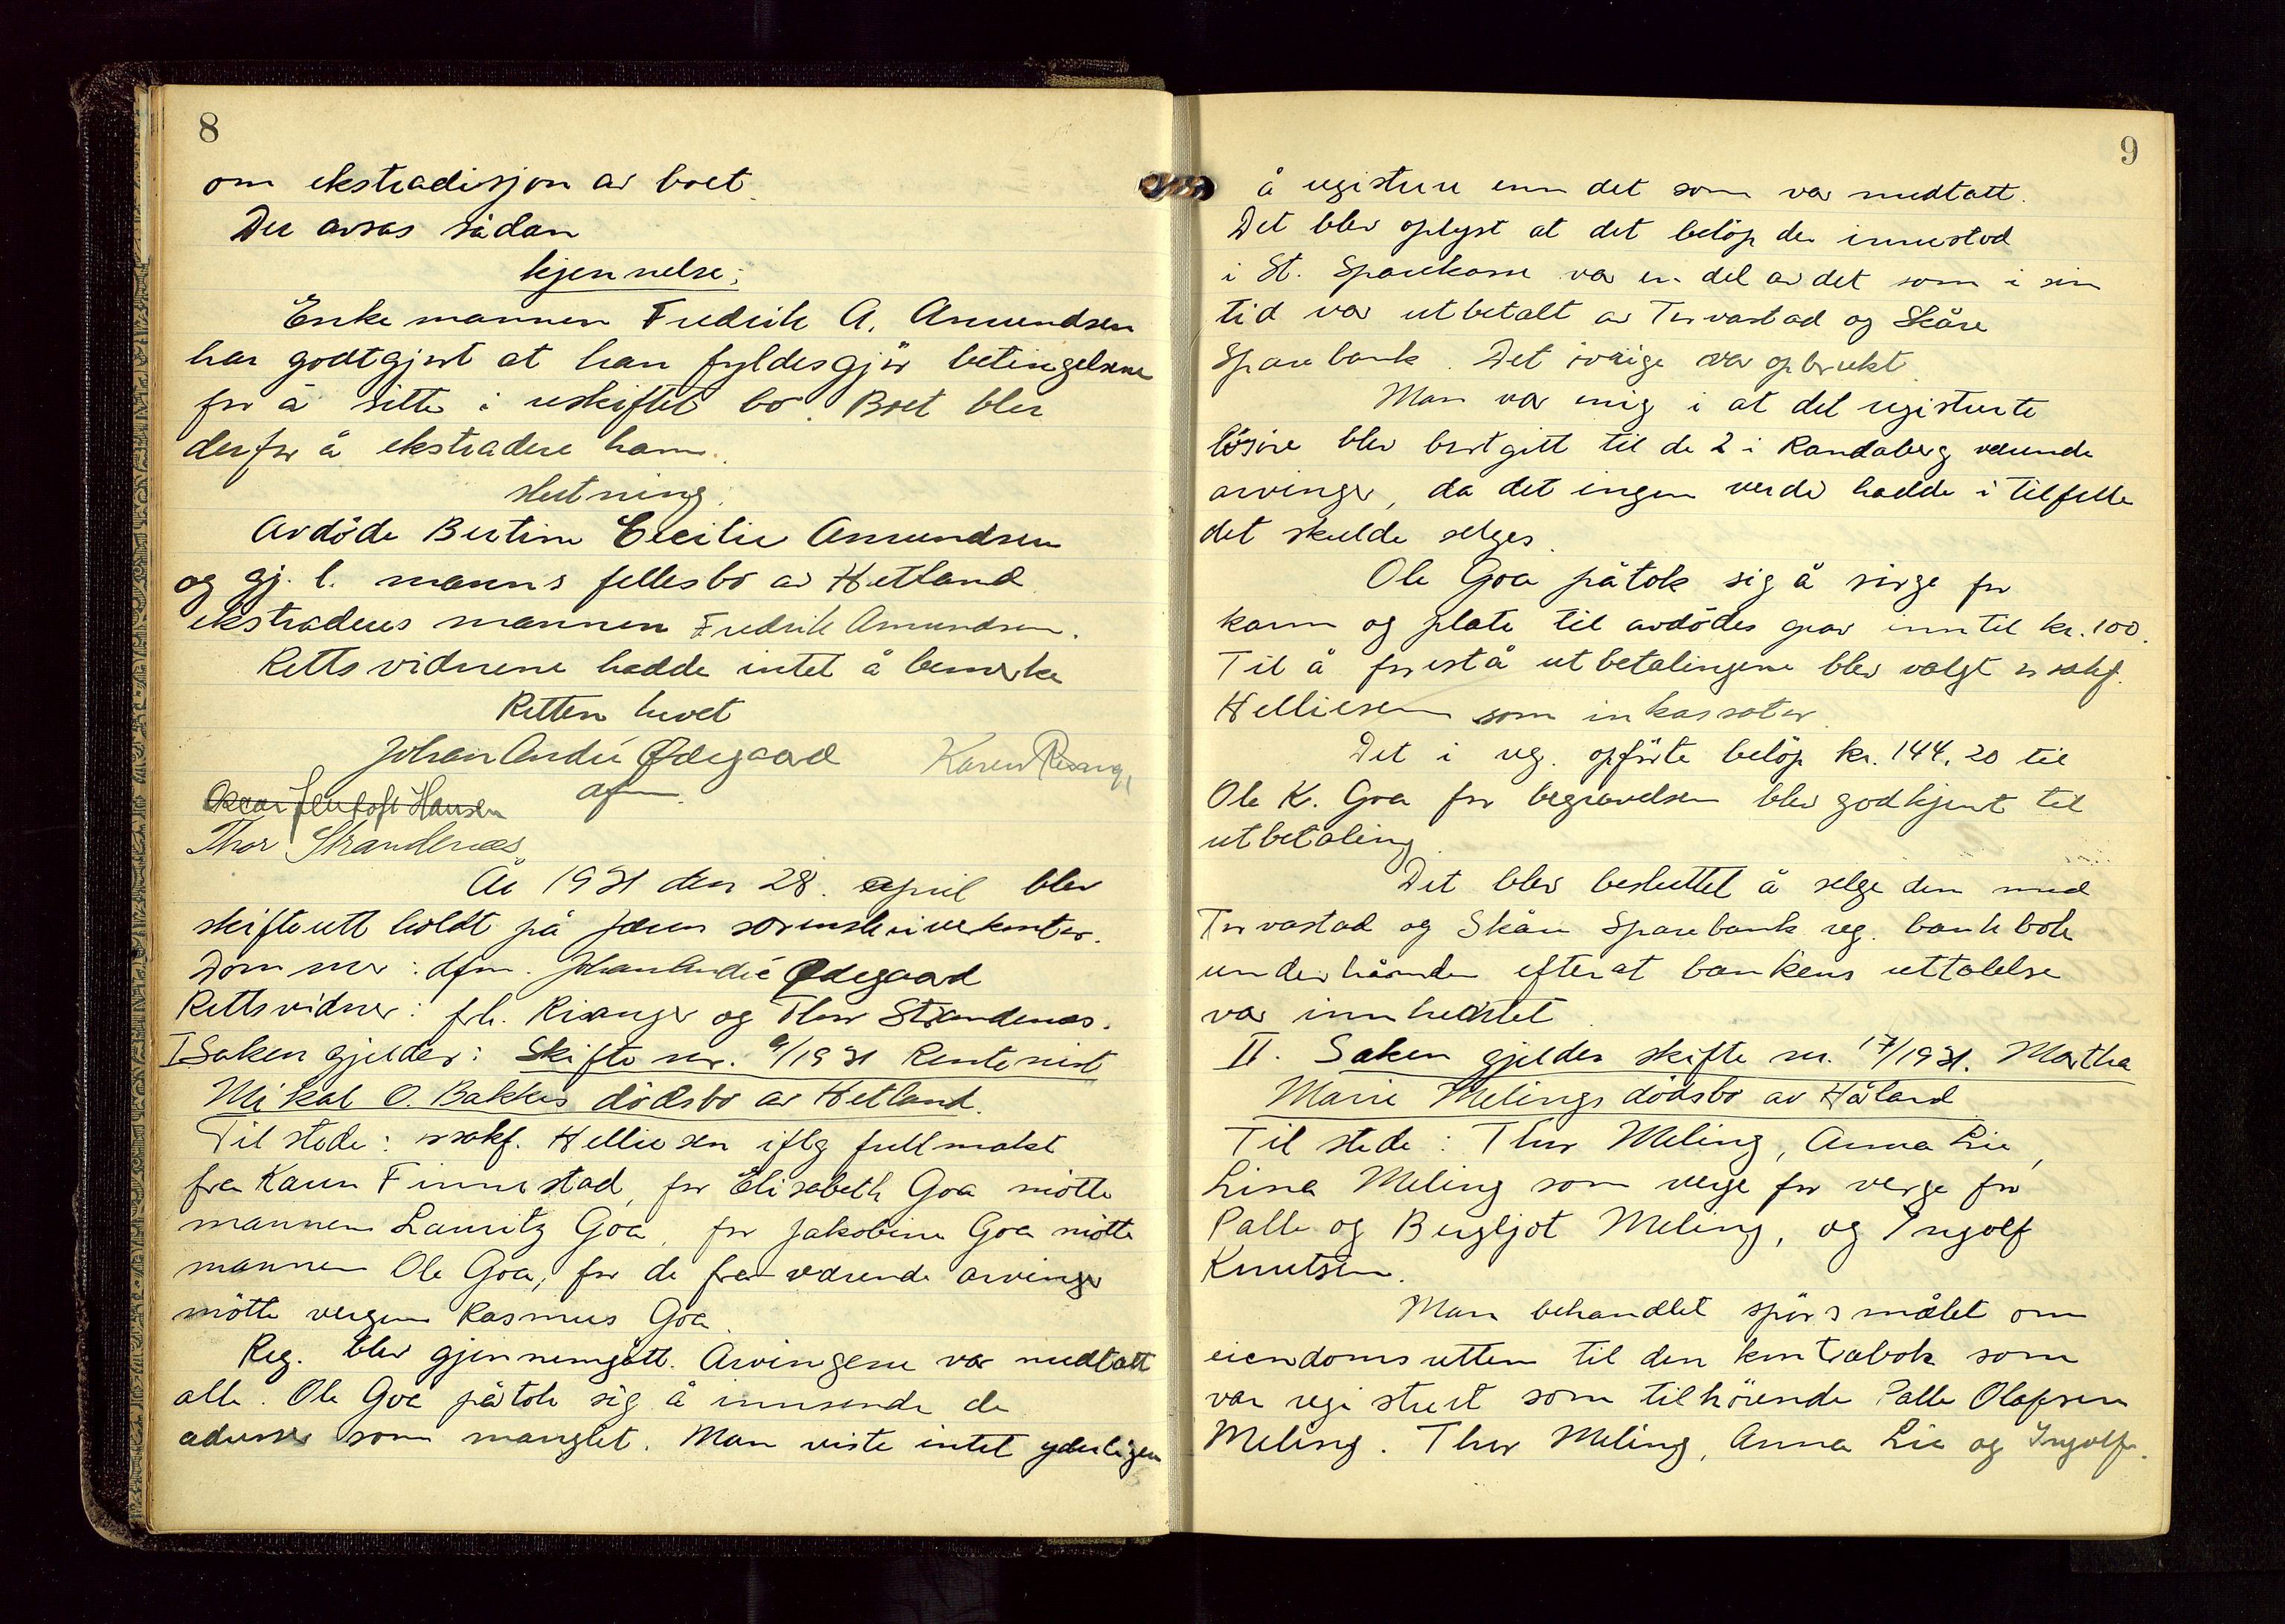 8
om ekstradisjon av boet.
Der avsas sådan
kjennelse:
Enkemannen Fredrik A. Amundsen
har godtgjort at han fyldesgjør betingelsene
for å sitte i uskiftet bo. Boet blir
derfor å ekstradere ham.
slutning:
Avdøde Bertine Cecilie Amundsen
og gj. l. manns fellesbo av Hetland
ekstraderes mannen Fredrik Amundsen.
Rettsvidnene hadde intet å bemerke
Retten hevet
Johan André Ødegaard Karen Risanger
Oscar Hansen dfm.
Thor Strandenæs
År 1931 den 28. april blev
skifterett holdt på Jæren sorenskriverkontor.
Dommer: dfm. Johan André Ødegaard
Rettsvidner: frk. Risanger og Thor Strandenæs.
I Saken gjelder: Skifte nr. 9/1931 Rentenist
Mikal O. Bakkes dødsbo av Hetland.
Til stede: o.r.sakf. Helliesen iflg fullmakt
fra Karen Finnestad, for Elisabeth Goa møtte
mannen Lauritz Goa, for Jakobine Goa møtte
mannen Ole Goa, for de fraværende arvinger
møtte vergen Rasmus Goa.
Reg. blev gjennemgått. Arvingene var medtatt
alle. Ole Goa påtok sig å innsende de
adresser som manglet. Man viste intet yderligere
9
å registrere enn det som var medtatt.
Det blev oplyst at det beløp der innestod
i St. Sparekasse var en del av det som i sin
tid var utbetalt av Torvastad og Skåre
Sparebank. Det øvrige var opbrukt.
Man var enig i at det registrerte
løsøre blev bortgitt til de 2 i Randaberg værende
arvinger, da det ingen verdi hadde i tilfelle
det skulde selges.
Ole Goa påtok sig å sørge for
karm og plate til avdødes grav inntil kr. 100.
Til å forestå utbetalingene blev valgt o.r.sakf.
Helliesen som inkassator.
Det i reg. opførte beløp kr. 144,20 til
Ole K. Goa for begravelsen blev godkjent til
utbetaling.
Det blev besluttet å selge den med
Torvastad og Skåre Sparebank reg. bankbok
underhånden efter at bankens uttalelse
var innhentet.
II. Saken gjelder skifte nr. 17/1931. Martha
Marie Melings dødsbo av Håland
Til stede: Thor Meling, Anna Lie,
Lina Meling som verge for verge for
Palle og Bergljot Meling, og Ingolf
Knutsen.
Man behandlet spørsmålet om
eiendomsretten til den kontrabok som
var registrert som tilhørende Palle Olafsen
Meling. Thor Meling, Anna Lie og Ingolf